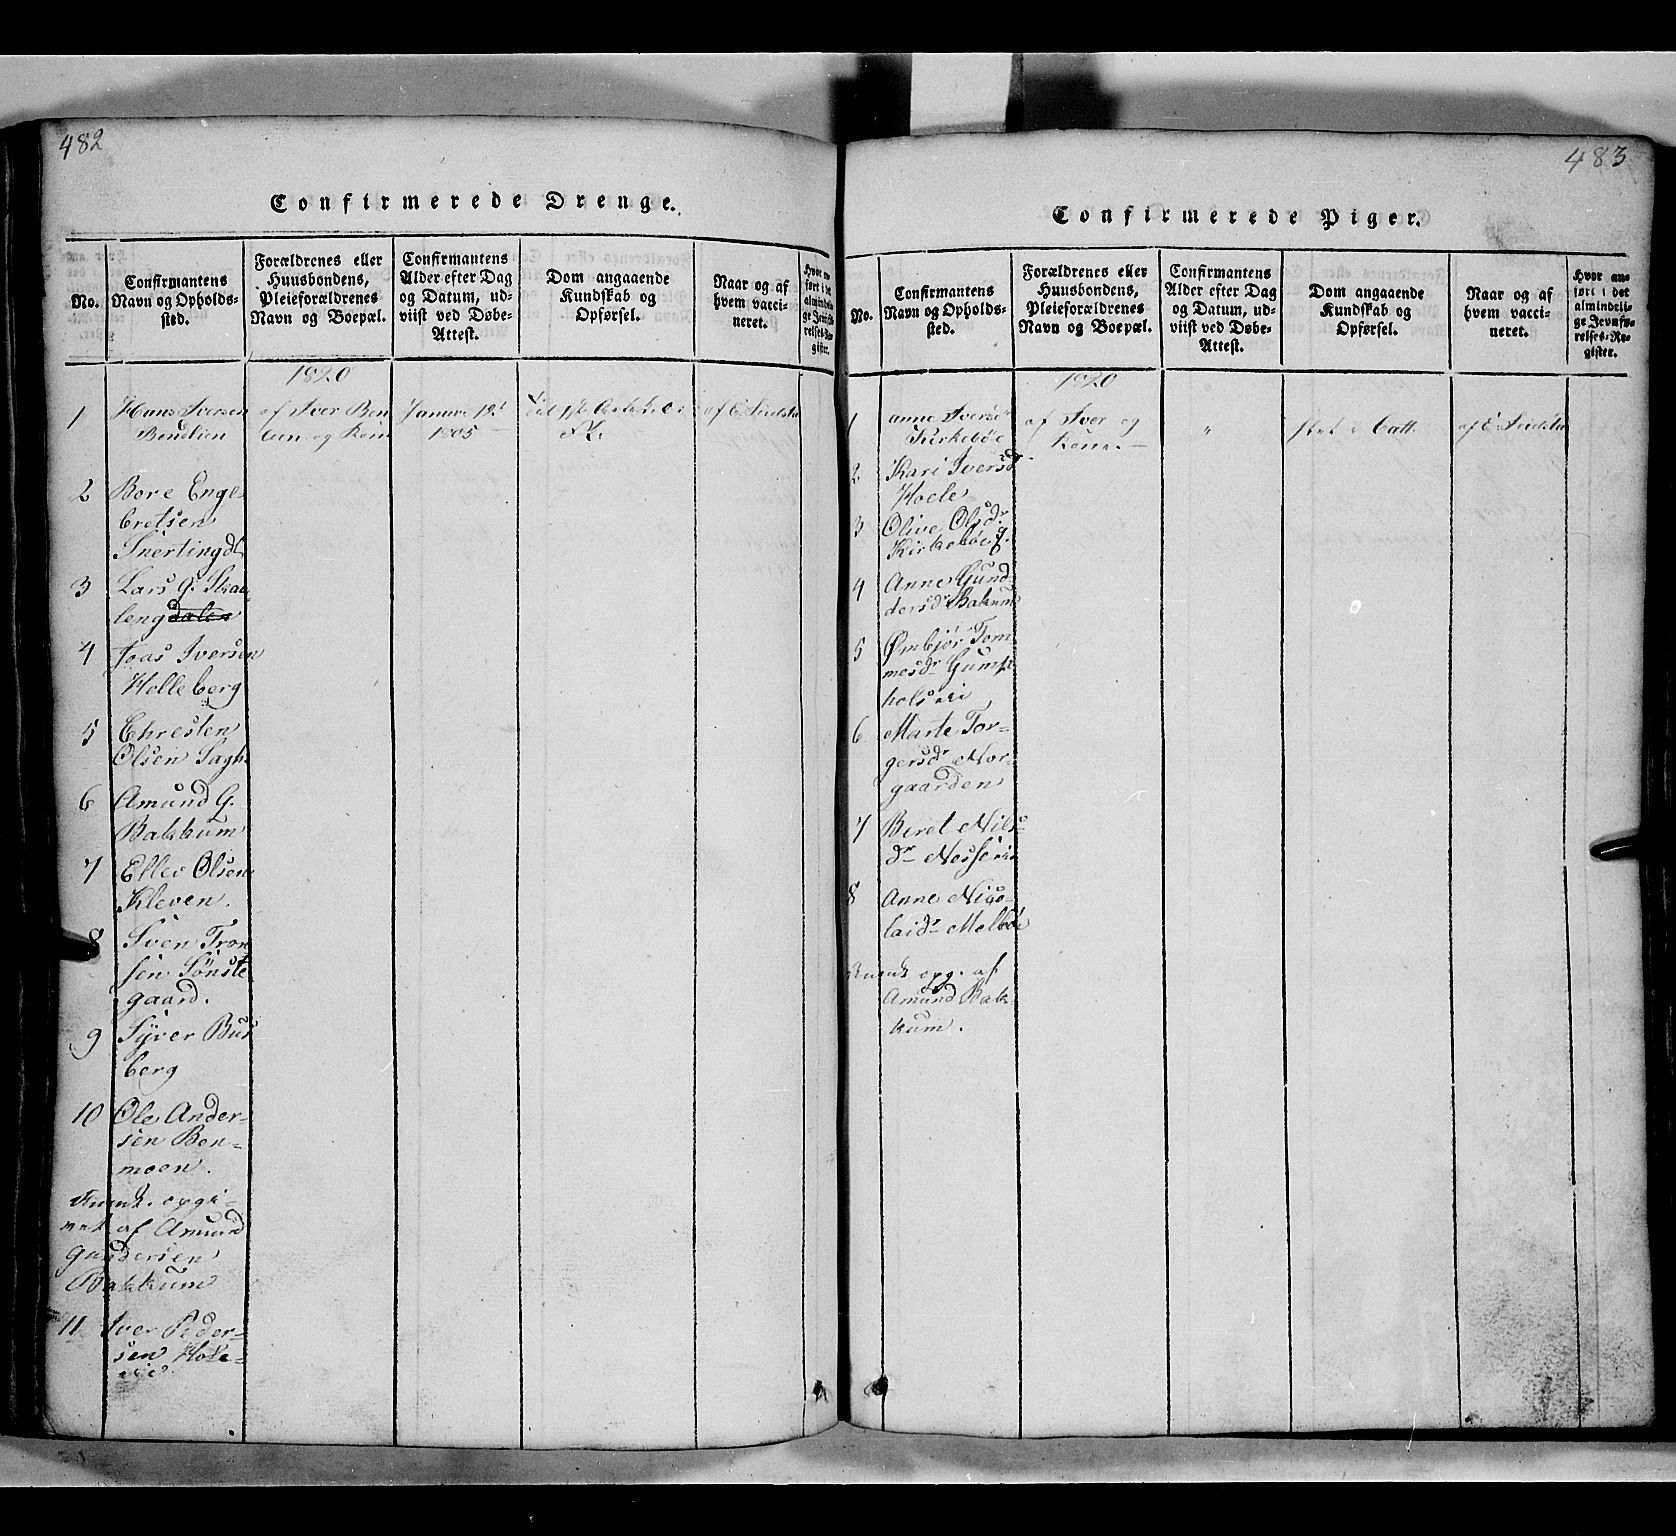 482
Confirmerede Drenge.
No.
Confirmantens
Navn og Opholds-
sted.
Forældrenes eller
Huusbondens,
Pleieforældrenes
Navn og Boepæl.
Confirmantens
Alder efter Dag
og Datum, ud-
viist ved Døbe-
Attest.
Dom angaaende
Kundskab og
Opførsel.
Naar og af
hvem vacci-
neret.
Hvor an-
ført i det
almindeli-
ge Jevnfø-
relses-Re-
gister.
1820
1 Hans Iversen
Bendlien
af Iver Ben
og
Januar 19
1805
af E.
2 Bore Enge-
bretsen
Snertingd
3 Lars G. Skau
leng
4 Joas Iversen
Helleberg
5 Chresten
Olsen Sagh
6 Amund G.
Bakkum
7 Ellev Olsen
Kleven.
8 Sven Tron
sen Sönste
gaard.
9 Syver Bus
berg
10 Ole Ander-
sen Ben-
moen.
opgi-
af Amund
Gundersen
Bakkum
11 Iver Peder-
sen
483
Confirmerede Piger.
No.
Confirmantens
Navn og Opholds-
sted.
Forældrenes eller
Huusbondens,
Pleieforældrenes
Navn og Boepæl.
Confirmantens
Alder efter Dag
og Datum, ud-
viist ved Døbe-
Attest.
Dom angaaende
Kundskab og
Opførsel.
Naar og af
hvem vacci-
neret.
Hvor an-
ført i det
almindeli-
ge Jevnfø-
relses-Re-
gister.
1820
1 anne Iversdr
Kirkeböe
af Iver og
"
af E.
2 Kari Iversdr
Hoele
3 Olive Olsdr
Kirkeböe
4 Anne Gund-
dersdr Bakum
5 Ømbjör Tom
mesdr
6 Marte Tor-
gersdr Nor-
gaarden
7 Beret Niels
dr
8 Anne Nico-
laidr Melböe
opg. af
Amund Bak-
kum.